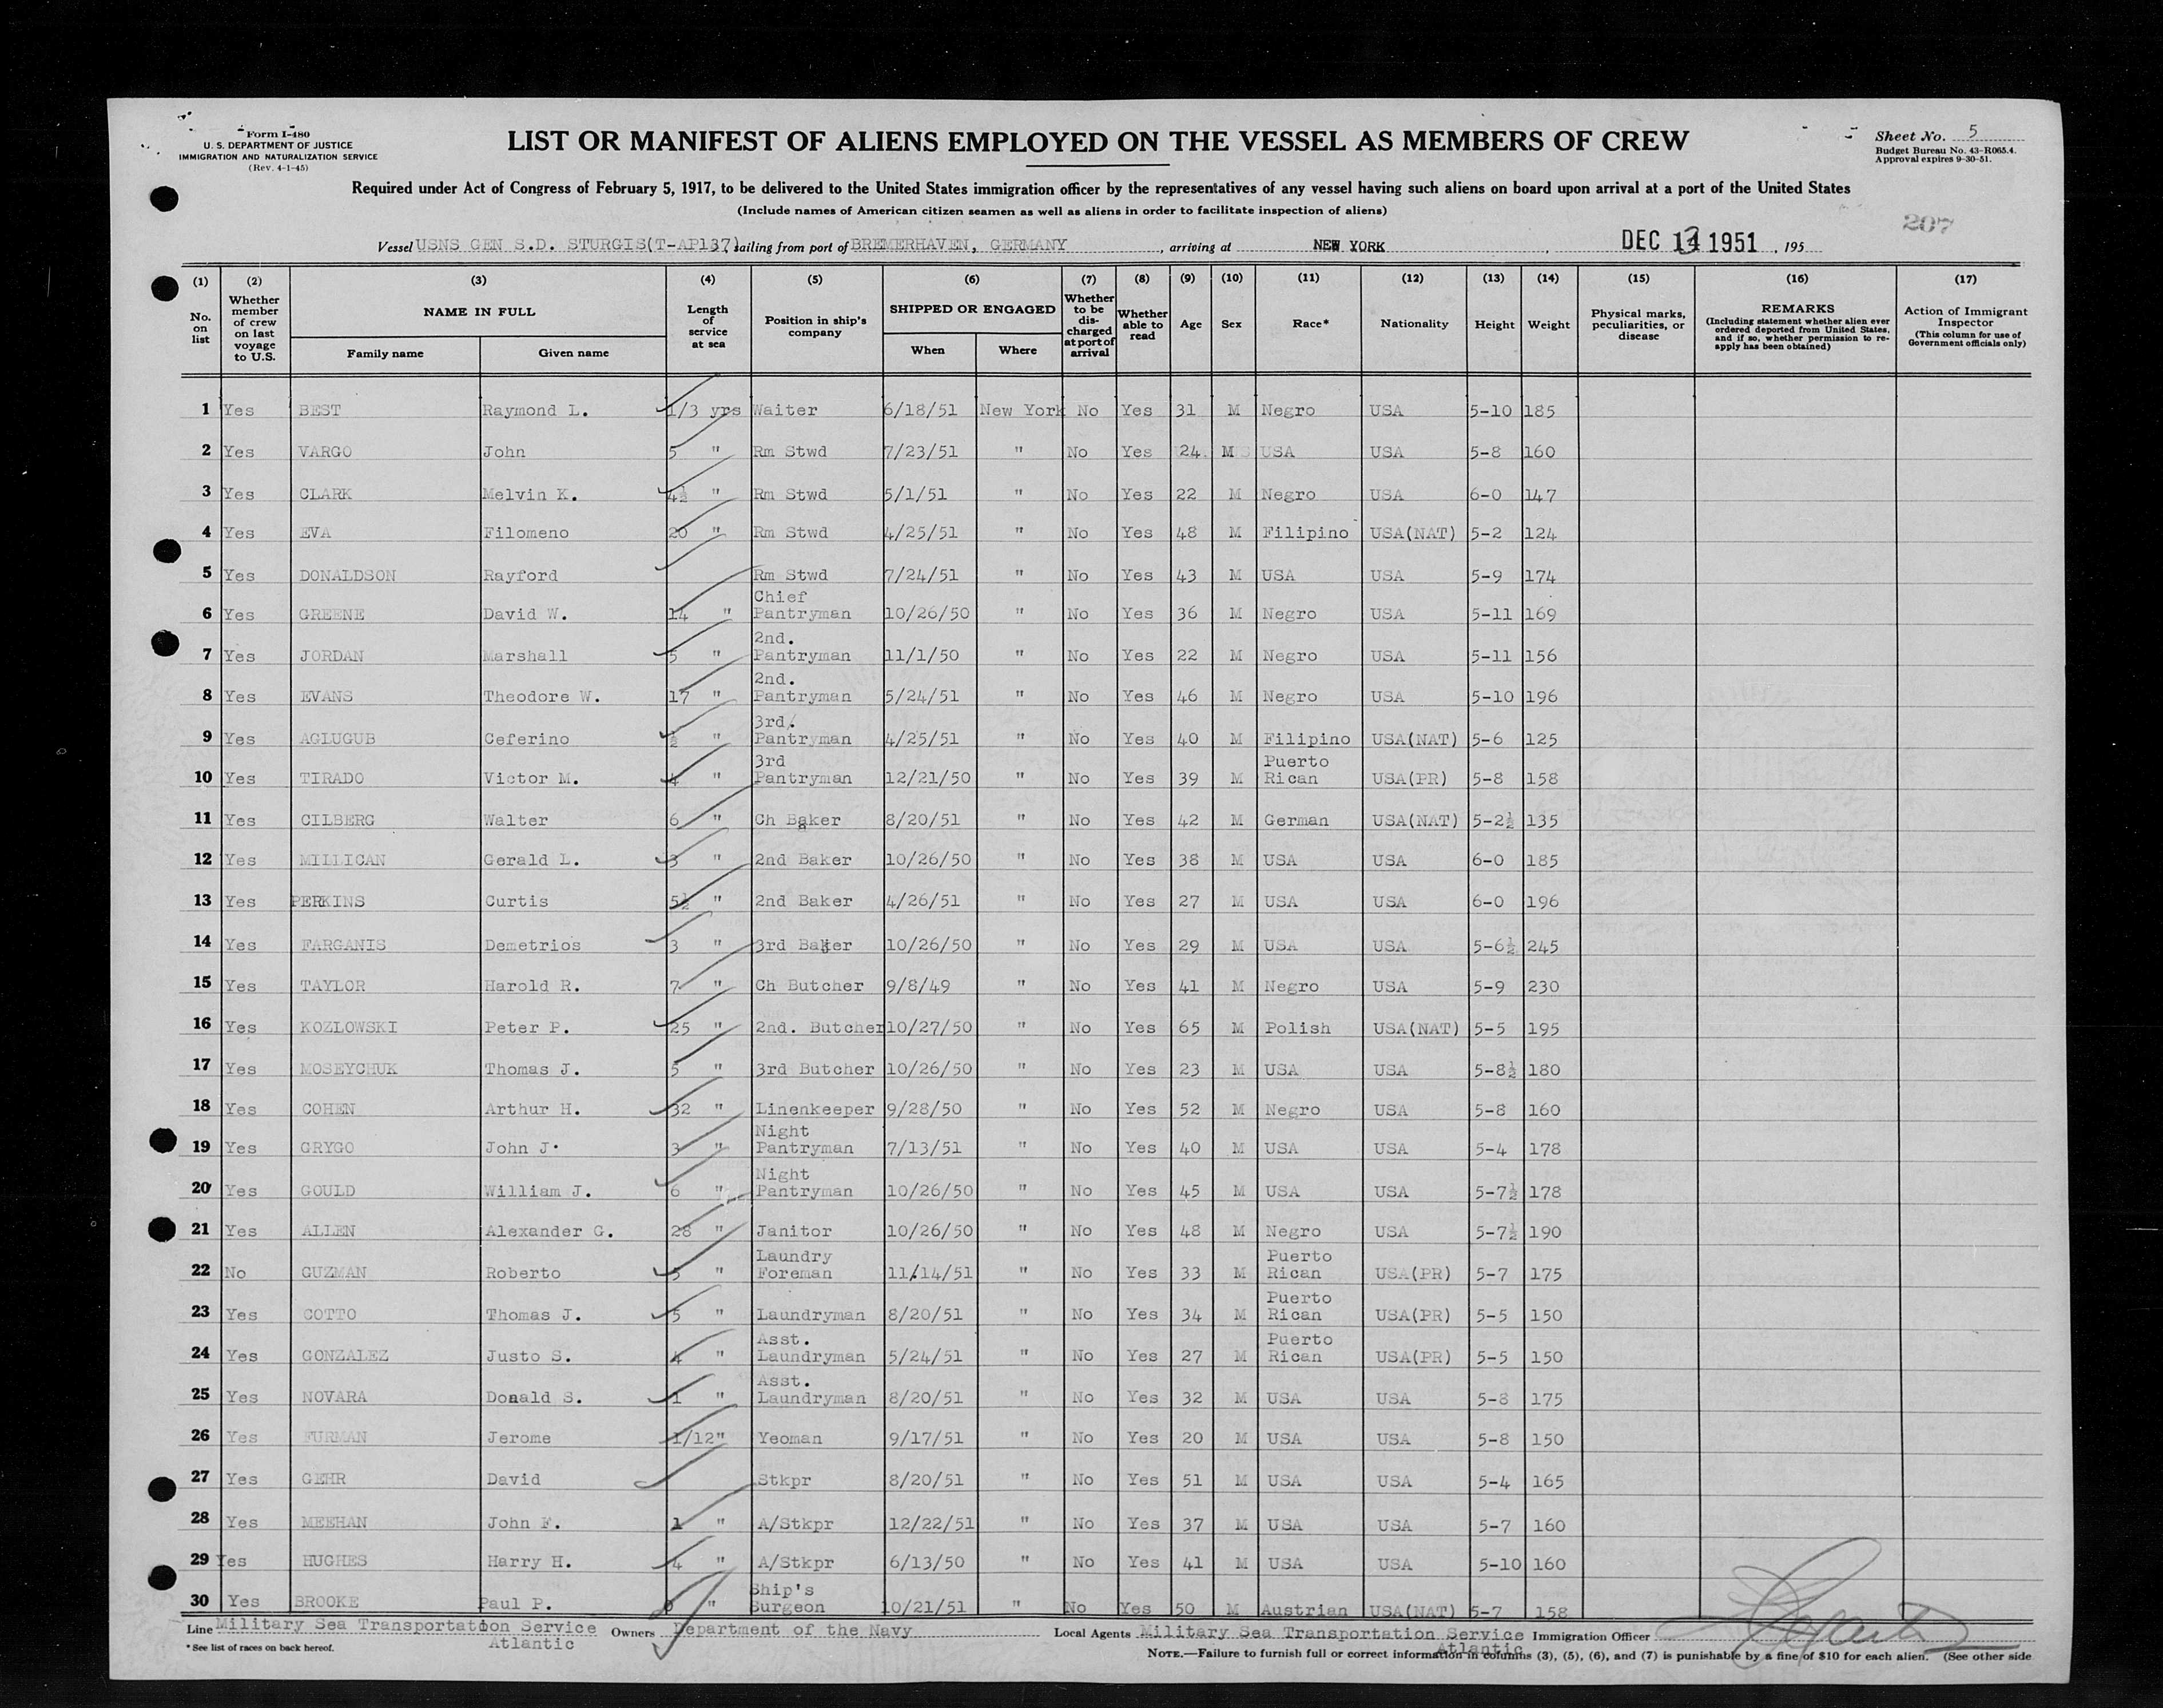 Form I-480
U. S. DEPARTMENT OF JUSTICE
IMMIGRATION AND NATURALIZATION SERVICE
(Rev. 4-1-45)
LIST OR MANIFEST OF ALIENS EMPLOYED ON THE VESSEL AS MEMBERS OF CREW
Sheet No. 5
Budget Bureau No. 43-R065.4.
Approval expires 9-30-51.
Required under Act of Congress of February 5, 1917, to be delivered to the United States immigration officer by the representatives of any vessel having such aliens on board upon arrival at a port of the United States
(Include names of American citizen seamen as well as aliens in order to facilitate inspection of aliens)
207
Vessel USNS GEN S.D. STURGIS(T-AP137), sailing from port of BREMERHAVEN, GERMANY, arriving at NEW YORK, DEC 1951, 195
(1) No. on list
(2) Whether member of crew on last voyage to U.S.
(3) NAME IN FULL Family name Given name
(4) Length of service at sea
(5) Position in ship's company
(6) SHIPPED OR ENGAGED When Where
(7) Whether to be discharged at port of arrival
(8) Whether able to read
(9) Age
(10) Sex
(11) Race*
(12) Nationality
(13) Height
(14) Weight
(15) Physical marks, peculiarities, or disease
(16) REMARKS (Including statement whether alien ever ordered deported from United States, and if so, whether permission to re-apply has been obtained)
(17) Action of Immigrant Inspector (This column for use of Government officials only)
1 Yes BEST Raymond L. 1/3 yrs Waiter 6/18/51 New York No Yes 31 M Negro USA 5-10 185
2 Yes VARGO John 5 " Rm Stwd 7/23/51 " No Yes 24 M USA USA 5-8 160
3 Yes CLARK Melvin K. 4½ " Rm Stwd 5/1/51 " No Yes 22 M Negro USA 6-0 147
4 Yes EVA Filomeno 20 " Rm Stwd 4/25/51 " No Yes 48 M Filipino USA(NAT) 5-2 124
5 Yes DONALDSON Rayford Rm Stwd 7/24/51 " No Yes 43 M USA USA 5-9 174
6 Yes GREENE David W. 14 " Chief Pantryman 10/26/50 " No Yes 36 M Negro USA 5-11 169
7 Yes JORDAN Marshall 5 " 2nd. Pantryman 11/1/50 " No Yes 22 M Negro USA 5-11 156
8 Yes EVANS Theodore W. 17 " 2nd. Pantryman 5/24/51 " No Yes 46 M Negro USA 5-10 196
9 Yes AGLUGUB Ceferino ½ " 3rd. Pantryman 4/25/51 " No Yes 40 M Filipino USA(NAT) 5-6 125
10 Yes TIRADO Victor M. 4 " 3rd Pantryman 12/21/50 " No Yes 39 M Puerto Rican USA(PR) 5-8 158
11 Yes CILBERG Walter 6 " Ch Baker 8/20/51 " No Yes 42 M German USA(NAT) 5-2½ 135
12 Yes MILLICAN Gerald L. 3 " 2nd Baker 10/26/50 " No Yes 38 M USA USA 6-0 185
13 Yes PERKINS Curtis 5½ " 2nd Baker 4/26/51 " No Yes 27 M USA USA 6-0 196
14 Yes FARGANIS Demetrios 3 " 3rd Baker 10/26/50 " No Yes 29 M USA USA 5-6½ 245
15 Yes TAYLOR Harold R. 7 " Ch Butcher 9/8/49 " No Yes 41 M Negro USA 5-9 230
16 Yes KOZLOWSKI Peter P. 25 " 2nd. Butcher 10/27/50 " No Yes 65 M Polish USA(NAT) 5-5 195
17 Yes MOSEYCHUK Thomas J. 5 " 3rd Butcher 10/26/50 " No Yes 23 M USA USA 5-8½ 180
18 Yes COHEN Arthur H. 32 " Linenkeeper 9/28/50 " No Yes 52 M Negro USA 5-8 160
19 Yes GRYGO John J. 3 " Night Pantryman 7/13/51 " No Yes 40 M USA USA 5-4 178
20 Yes GOULD William J. 6 " Night Pantryman 10/26/50 " No Yes 45 M USA USA 5-7½ 178
21 Yes ALLEN Alexander G. 28 " Janitor 10/26/50 " No Yes 48 M Negro USA 5-7½ 190
22 No GUZMAN Roberto 5 " Laundry Foreman 11/14/51 " No Yes 33 M Puerto Rican USA(PR) 5-7 175
23 Yes COTTO Thomas J. 5 " Laundryman 8/20/51 " No Yes 34 M Puerto Rican USA(PR) 5-5 150
24 Yes GONZALEZ Justo S. 4 " Asst. Laundryman 5/24/51 " No Yes 27 M Puerto Rican USA(PR) 5-5 150
25 Yes NOVARA Donald S. 1 " Asst. Laundryman 8/20/51 " No Yes 32 M USA USA 5-8 175
26 Yes FURMAN Jerome 1/12" Yeoman 9/17/51 " No Yes 20 M USA USA 5-8 150
27 Yes GEHR David Stkpr 8/20/51 " No Yes 51 M USA USA 5-4 165
28 Yes MEEHAN John F. 1 " A/Stkpr 12/22/51 " No Yes 37 M USA USA 5-7 160
29 Yes HUGHES Harry H. 4 " A/Stkpr 6/13/50 " No Yes 41 M USA USA 5-10 160
30 Yes BROOKE Paul P. " Ship's Surgeon 10/21/51 " No Yes 50 M Austrian USA(NAT) 5-7 158
Line Military Sea Transportation Service Atlantic Owners Department of the Navy Local Agents Military Sea Transportation Service Atlantic Immigration Officer
*See list of races on back hereof.
NOTE.—Failure to furnish full or correct information in columns (3), (5), (6), and (7) is punishable by a fine of $10 for each alien. (See other side